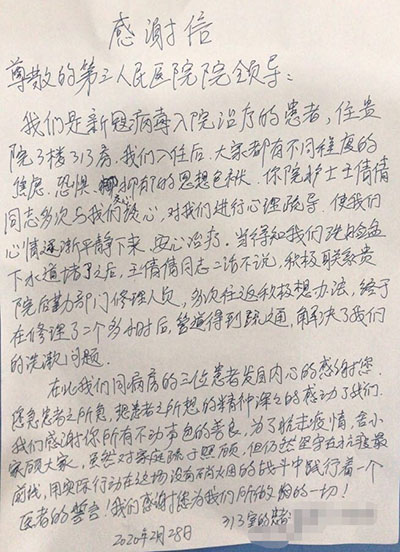 感谢信
尊敬的第三人民医院院领导：
我们是新冠病毒入院治疗的患者，住贵
院3楼313房，我们入住后，大家都有不同程度的
焦虑、恐惧、抑郁的思想包袱。你院护士王倩倩
同志多次与我们谈心，对我们进行心理疏导，使我们
心情逐渐平静下来，安心治疗。当得知我们洗脸盆
下水道堵了之后，王倩倩同志二话不说，积极联系贵
院后勤部门修理人员，多次往返积极想办法，终于
在修理了二个多小时后，管道得到疏通，解决了我们
的洗漱问题。
在此我们同病房的三位患者发自内心的感谢您。
您急患者之所急，想患者之所想的精神深深的感动了我们。
我们感谢你所有不动声色的善良，为了抗击疫情，舍小
家顾大家，虽然对家庭疏于照顾，但仍然坚守在抗疫最
前线，用实际行动在这场没有硝烟的战斗中践行着一个
医者的誓言！我们感谢您为我们所做的一切！
313室的患者
2020年2月28日